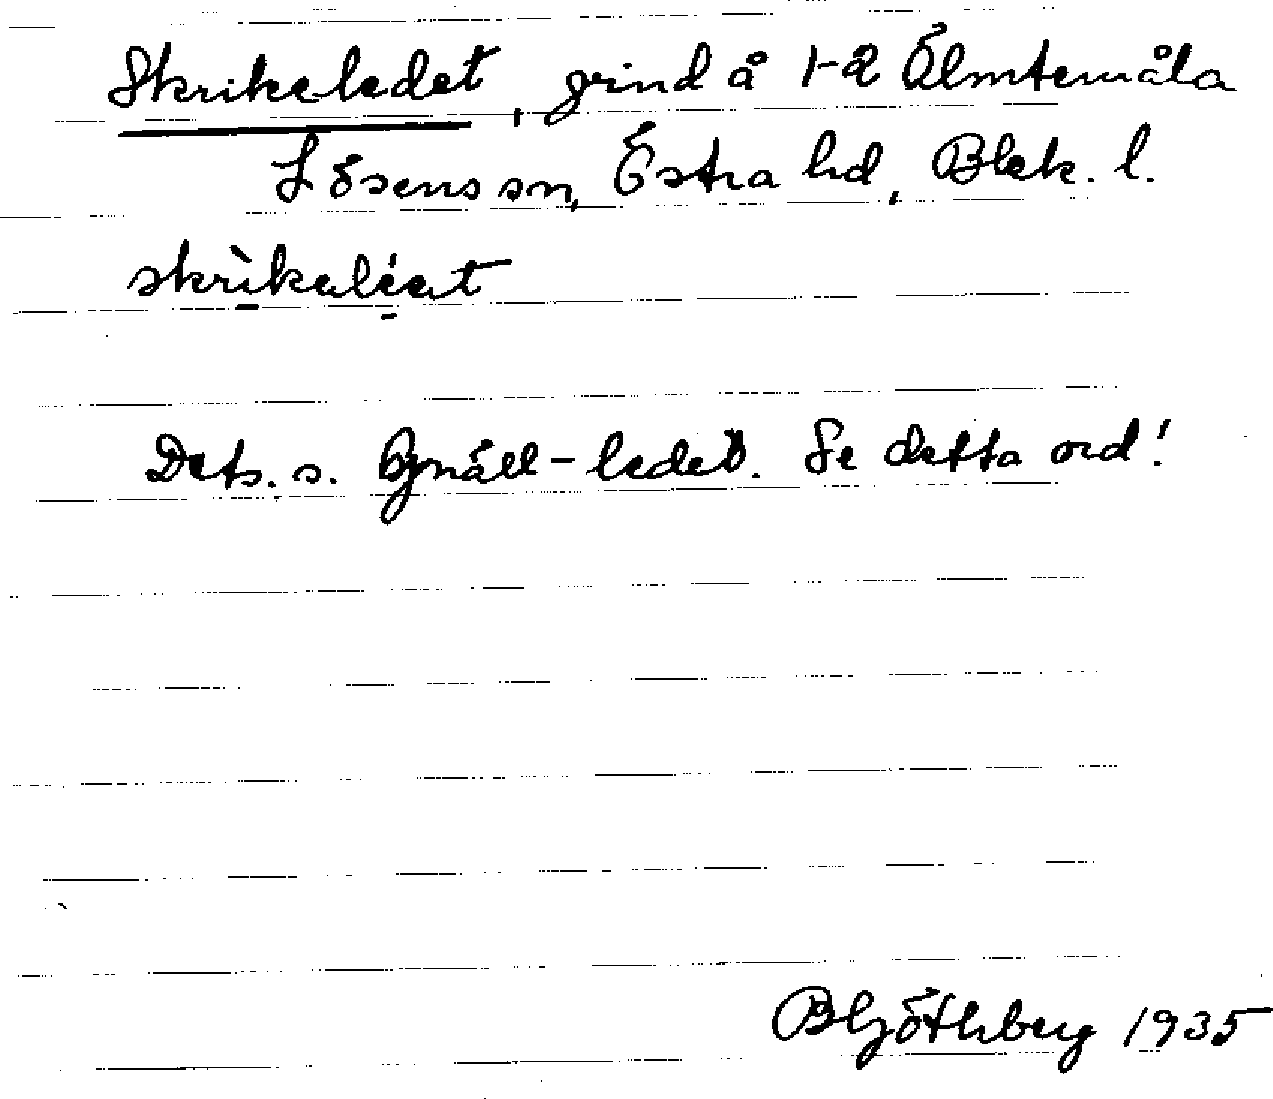 Skrikeledet, grind å 1-2 Ölmtemåla
Lösens sn, Östra hd, Blek. l.
skrìkaléat
Dets. s. Gnäll-ledet. Se detta ord!
B Göthberg 1935